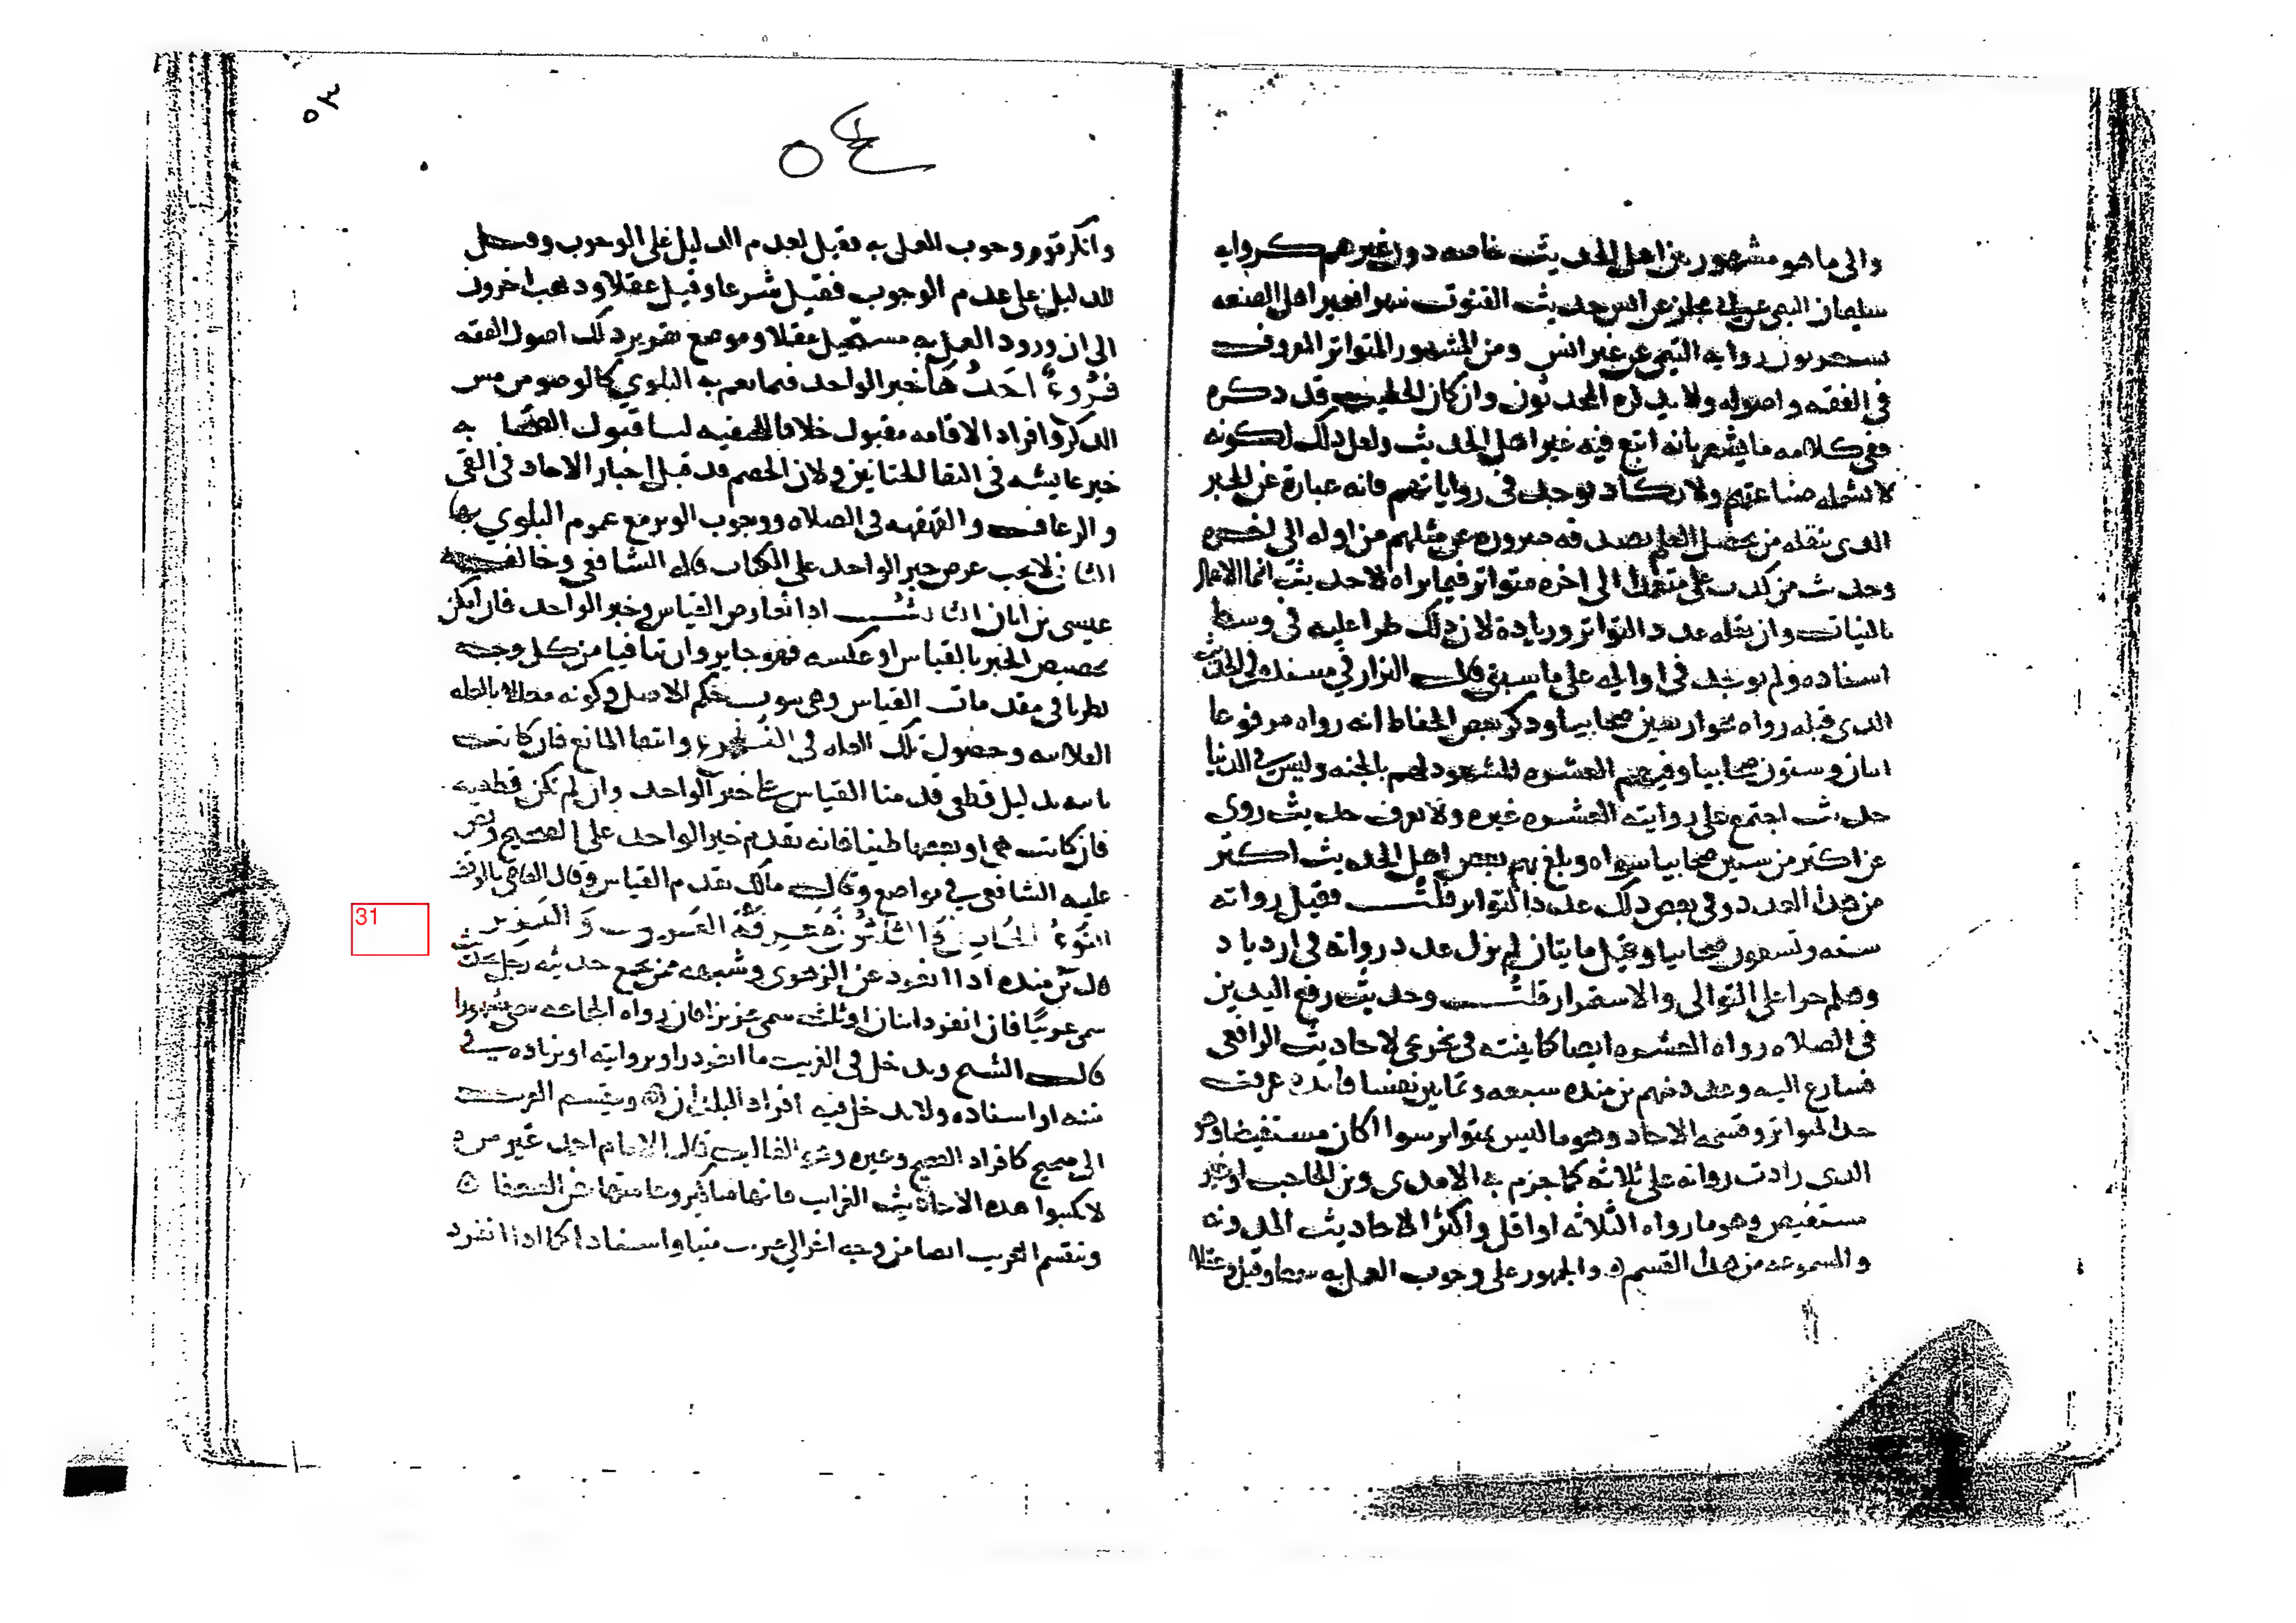 والى ما هو مشهور بين اهل الحديث خاصه دون غيرهم كرواىه
سليمان التيمي عن ابي مجلز عن انس حديث القنوت فهو افخبر اهل الصنعه
يستغربون روايه التيمي عن غير انس ومن المشهور المتواتر المعروف
في الفقه واصوله ولا يذكره المحدثون وان كان الخطيب قد ذكره
ففي كلامه ما يشعر بانه اتبع فيه غير اهل الحديث ولعل ذلك لكونه
لا تشمله صناعتهم ولا يكاد يوجد في رواياتهم فانه عبارة عن الخبر
الذي ينقله من يحصل العلم بصدقه ضرورة عن مثلهم من اوله الى اخره
وحديث من كذب على متعمدا الى اخره متواتر فيما نراه لا حديث انما الاعمال
بالنيات وان نقله عدد التواتر وزيادة لان ذلك طرا عليه في وسط
اسناده ولم يوجد في اوايله على ما سبق قلت البزار في مسنده في الحديث
الذي قبله رواه نحو اربعين صحابيا وذكر بعض الحفاظ انه رواه مرفوعا
اثنان وستون صحابيا وفيهم العشره المشهود لهم بالجنه وليس في الدنيا
حديث اجتمع على روايته العشره غيره ولا يعرف حديث روي
عن اكثر من ستين صحابيا سواه وبلغ بهم بعض اهل الحديث اكثر
من هذا العدد وفي بعض ذلك عدد التواتر قلت فقيل رواته
سته وتسعون صحابيا وقيل مايتان لم يزل عدد رواته في ازدياد
وهلم جرا على التوالي والاستمرار قلت وحديث رفع اليدين
في الصلاه رواه العشره ايضا كما بينته في تخريجي لاحاديث الرافعي
فسارع اليه وعددهم بن منده سبعه وثمانين نفسا فايده عرفت
حد المتواتر وقسيمه الاحاد وهو ما ليس بمتواتر سوا اكان مستفيضا وهو
الذي زادت رواته على ثلاثه كما جزم به الامدي وبن الحاجب او غير
مستفيض وهو ما رواه الثلاثه او اقل واكثر الاحاديث المدونه
والمسموعه من هذا القسم ه والجمهور على وجوب العمل به سمعا وقيل وعقلا
٥٣
٥٤
وانكر قوم وجوب العمل به فقيل لعدم الدليل على الوجوب وقيل
للدليل على عدم الوجوب فقيل شرعا وقيل عقلا وذهب اخرون
الى ان ورود العمل به مستحيل عقلا وموضع تقرير ذلك اصول الفقه
فروع احدها خبر الواحد فيما تعم به البلوي كالوضو من مس
الذكر وافراد الاقامه مقبول خلافا للحنفيه لنا قبول الصحابه
خبر عايشه في التقا الختانين ولان الخصم قد قبل اخبار الاحاد في القي
والرعاف والقهقهه في الصلاه ووجوب الوتر مع عموم البلوي بها
الثاني لا يجب عرض خبر الواحد على الكتاب قاله الشافعي وخالفه
عيسى بن ابان الثالث اذا تعارض القياس وخبر الواحد فان امكن
تخصيص الخبر بالقياس او عكسه فهو جايز وان تنافيا من كل وجه
نظرنا في مقدمات القياس وهي ثبوت حكم الاصل وكونه معللا بالعله
الفلانيه وحصول تلك العله في الفرع وانتفا المانع فان كانت
ثابته بدليل قطعي قدمنا القياس على خبر الواحد وان لم تكن قطعيه
فان كانت هي او بعضها ظنيا فانه يقدم خبر الواحد على الصحيح ونص
عليه الشافعي في مواضع وقال مالك يقدم القياس وقال القاضي بالوقف
النوع الحادي والثلثون معرفة الغريب والعزيز
31
قال بن منده اذا انفرد عن الزهري وشبهه ممن يجمع حديثه رجل بحديث
سمي غريبا فان انفرد اثنان او ثلث سمي عزيزا فان رواه الجماعه سمي مشهورا
قال الشيخ ويدخل في الغريب ما انفرد راو بروايته او بزياده في
متنه او اسناده ولا يدخل فيه افراد البلدان ه وينقسم الغريب
الى صحيح كافراد الصحيح وغيره وهو الغالب قال الامام احمد غير مره
لا تكتبوا هذه الاحاديث الغرايب فانها مناكير وعامتها عن الضعفا ه
وينقسم الغريب ايضا من وجه اخر الى غريب متنا واسنادا كما اذا انفرد